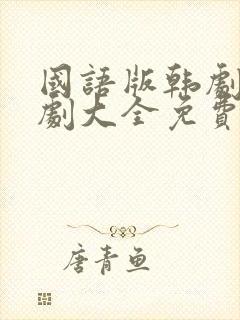 國語版韩劇
劇大全免費
唐青鱼